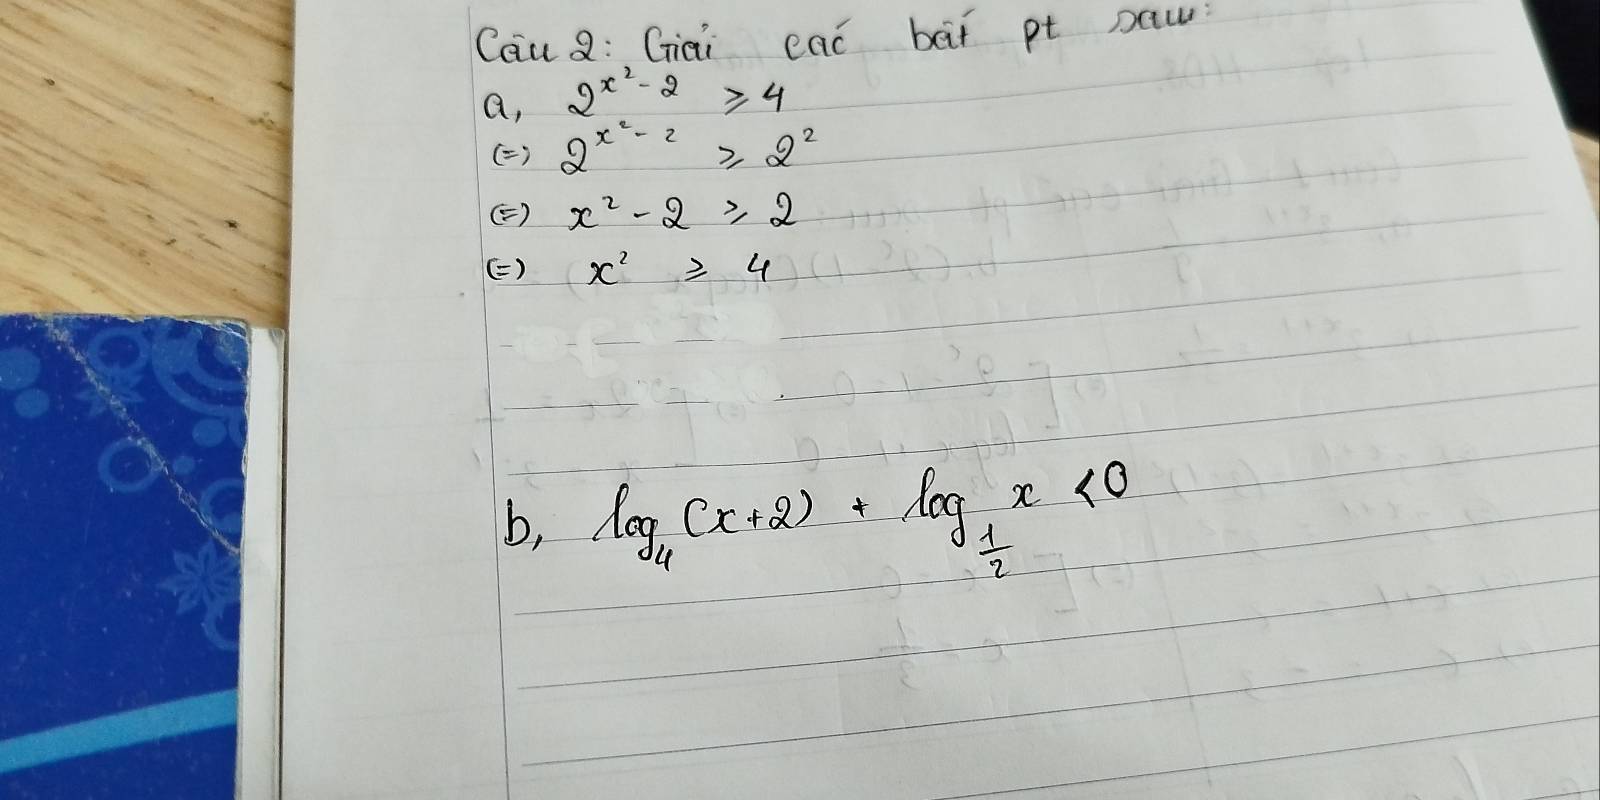 Câu 2: Giải các bất pt sau:
a, 2^{x²-2} ⩾ 4
(=) 2^{x²-2} ⩾ 2²
(=) x² - 2 ⩾ 2
(=) x² ⩾ 4
b, log₄(x+2) + log_{1/2} x < 0